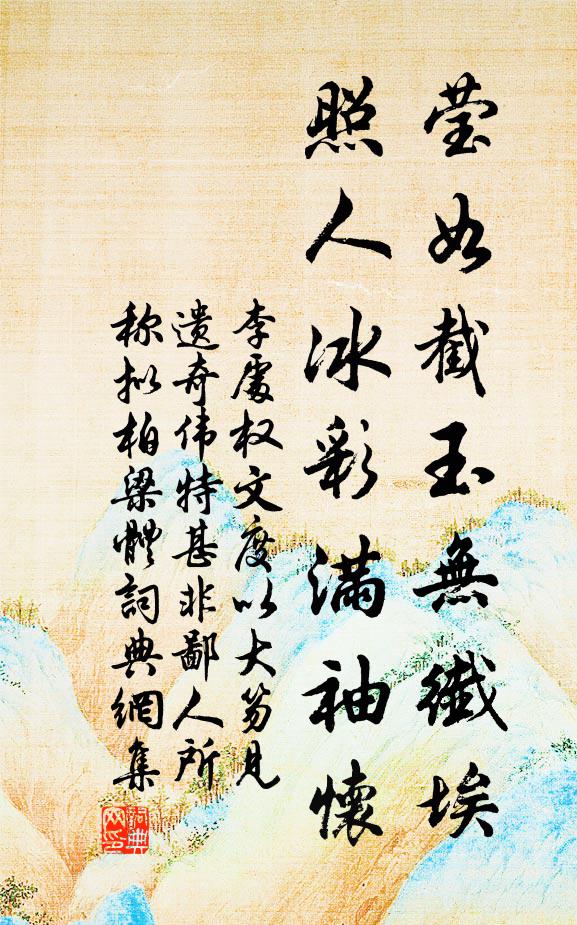 莹如截玉無纖埃
照人冰彩滿袖懷
李處权文度以大笏見
遗奇伟特甚非鄙人所
称拟柏梁體詞典網集
詞典
网印